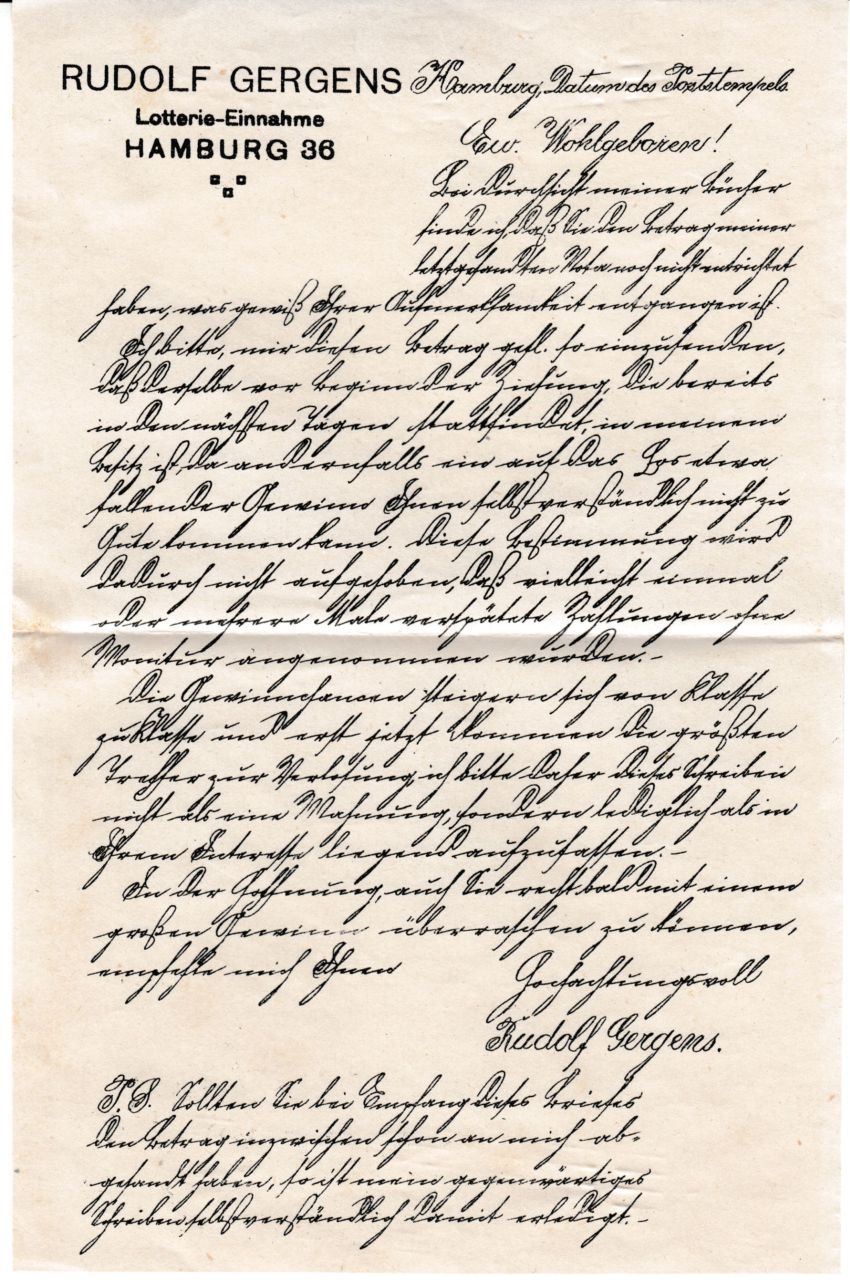 RUDOLF GERGENS
Lotterie-Einnahme
HAMBURG 36
Hamburg, Datum des Poststempels.
Ew. Wohlgeboren!
Bei Durchsicht meiner Bücher
finde ich, daß Sie den Betrag meiner
letztgesandten Nota noch nicht entrichtet
haben, was gewiß Ihrer Aufmerksamkeit entgangen ist.
Ich bitte, mir diesen Betrag gefl. so einzusenden,
daß derselbe vor Beginn der Ziehung, die bereits
in den nächsten Tagen stattfindet, in meinem
Besitz ist, da andernfalls ein auf das Los etwa
fallender Gewinn Ihnen selbstverständlich nicht zu
Gute kommen kann. Diese Bestimmung wird
dadurch nicht aufgehoben, daß vielleicht einmal
oder mehrere Male verspätete Zahlungen ohne
Monitur angenommen wurden.-
Die Gewinnchancen steigern sich von Klasse
zu Klasse und erst jetzt kommen die größten
Treffer zur Verlosung, ich bitte daher dieses Schreiben
nicht als eine Mahnung, sondern lediglich als in
Ihrem Interesse liegend aufzufassen.-
In der Hoffnung, auch Sie recht bald mit einem
großen Gewinn überraschen zu können,
empfehle mich Ihnen
Hochachtungsvoll
Rudolf Gergens.
P.S. Sollten Sie bei Empfang dieses Briefes
den Betrag inzwischen schon an mich ab-
gesandt haben, so ist mein gegenwärtiges
Schreiben selbstverständlich damit erledigt.-